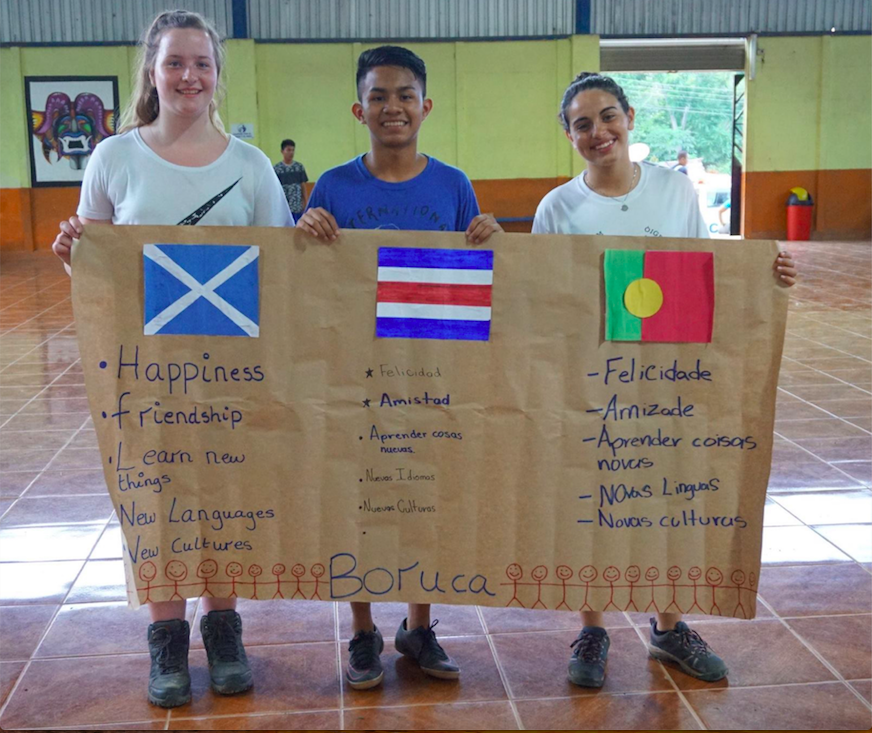 • Happiness
• friendship
• Learn new
things
New Languages
• New Cultures
★ Felicidad
★ Amistad
• Aprender cosas
nuevas
• Nuevos Idiomas
• Nuevas Culturas
•
- Felicidade
- Amizade
- Aprender coisas
novas
- NOVas Linguas
- Novas culturas
Boruca